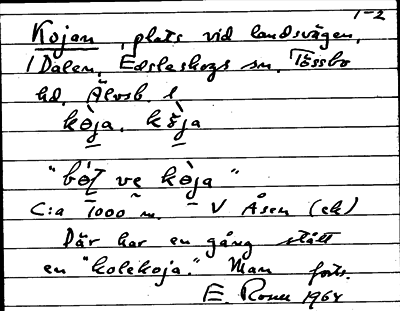 1-2
Kojan, plats vid landsvägen,
i Dalen, Edsleskogs sn, Tössbo
hd, Älvsb. l
kòja, kòja
"bot ve kòja"
C:a 1000 m. V Åsen (ek)
Där har en gång stått
en "kolekoja." Man forts.
E. 1964